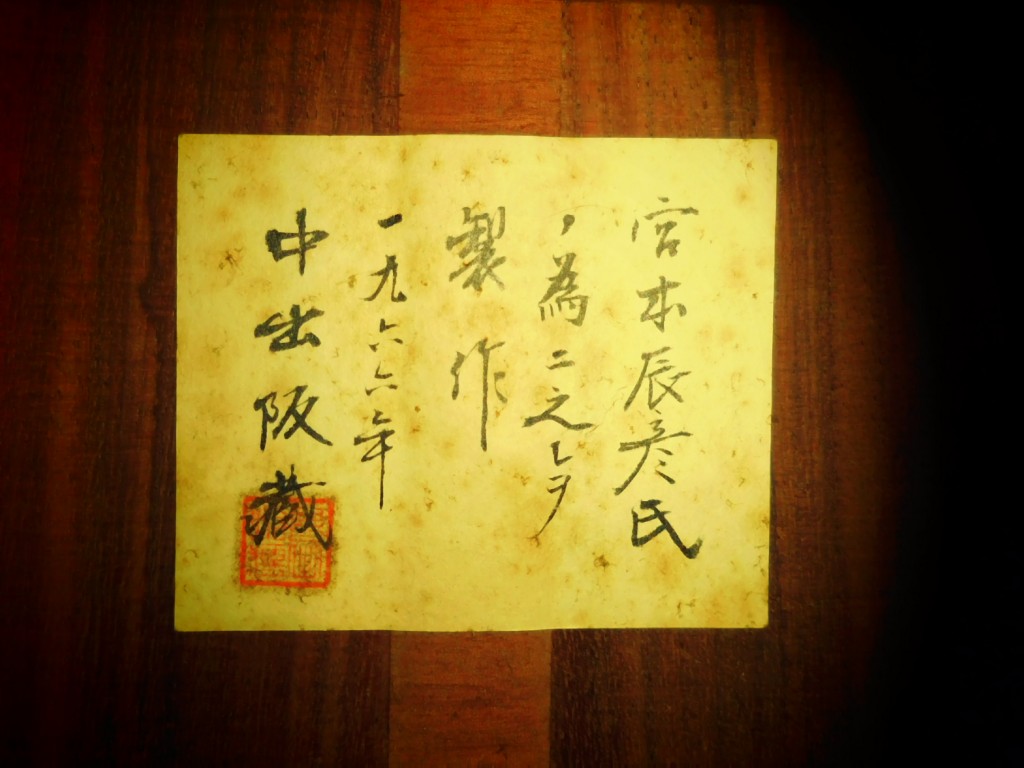 宮本辰彦氏
ノ為ニ之レヲ
製作
一九六六年
中出阪蔵